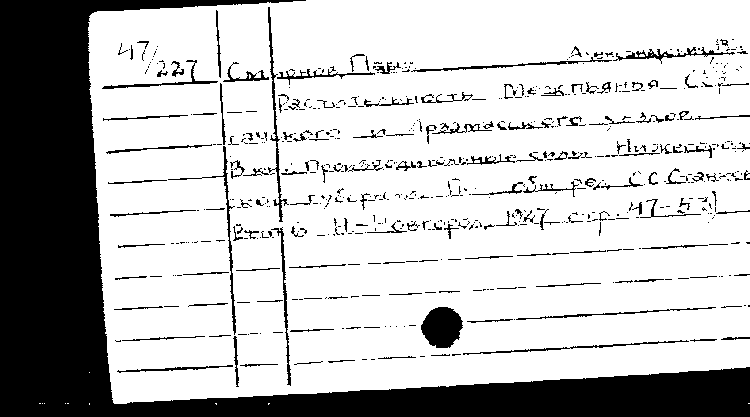 47/227
Смирнов, Павел Александрович, 
Растительность Межпьянья Сер-
гачского и Арзамасского уездов.
В кн.: Производительные силы Нижегород-
ской губернии. Под общ. ред. С.С. Станков
Вып. 6 Н-Новгород, 1927 стр. 47-53]